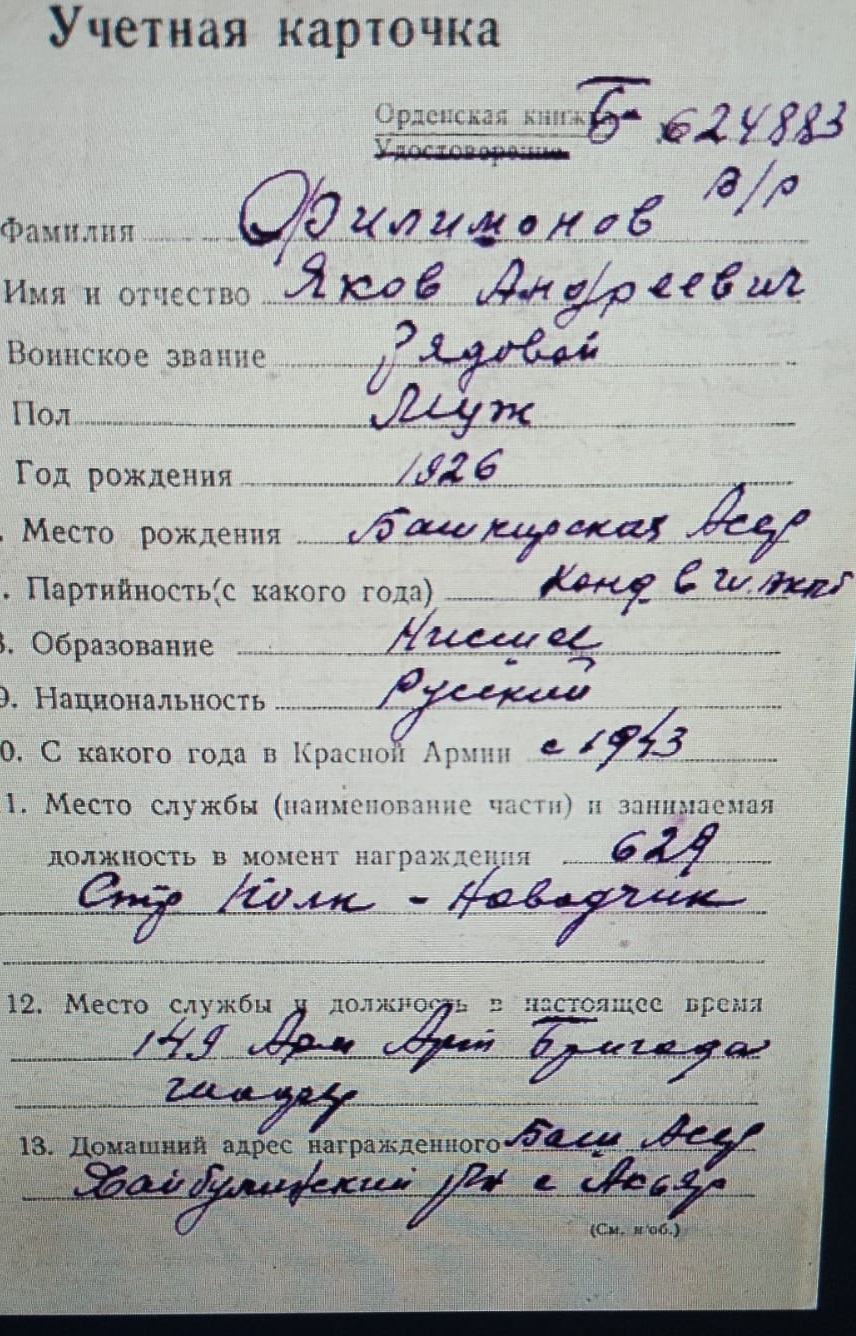 Учетная карточка
Орденская книжка Б № 624883
Удостоверение
в/р
Фамилия Филимонов
Имя и отчество Яков Андреевич
Воинское звание Рядовой
Пол Муж
Год рождения 1926
. Место рождения Башкирская Асср
. Партийность (с какого года) Канд в чл. вкпб
8. Образование Низшее
9. Национальность Русский
0. С какого года в Красной Армии с 1943
1. Место службы (наименование части) и занимаемая
должность в момент награждения 629
Стр Полк - Наводчик
12. Место службы и должность в настоящее время
149 Арм Арт Бригада
13. Домашний адрес награжденного Баш Асср
Хайбулинский рн с Акъяр
(См. н'об.)